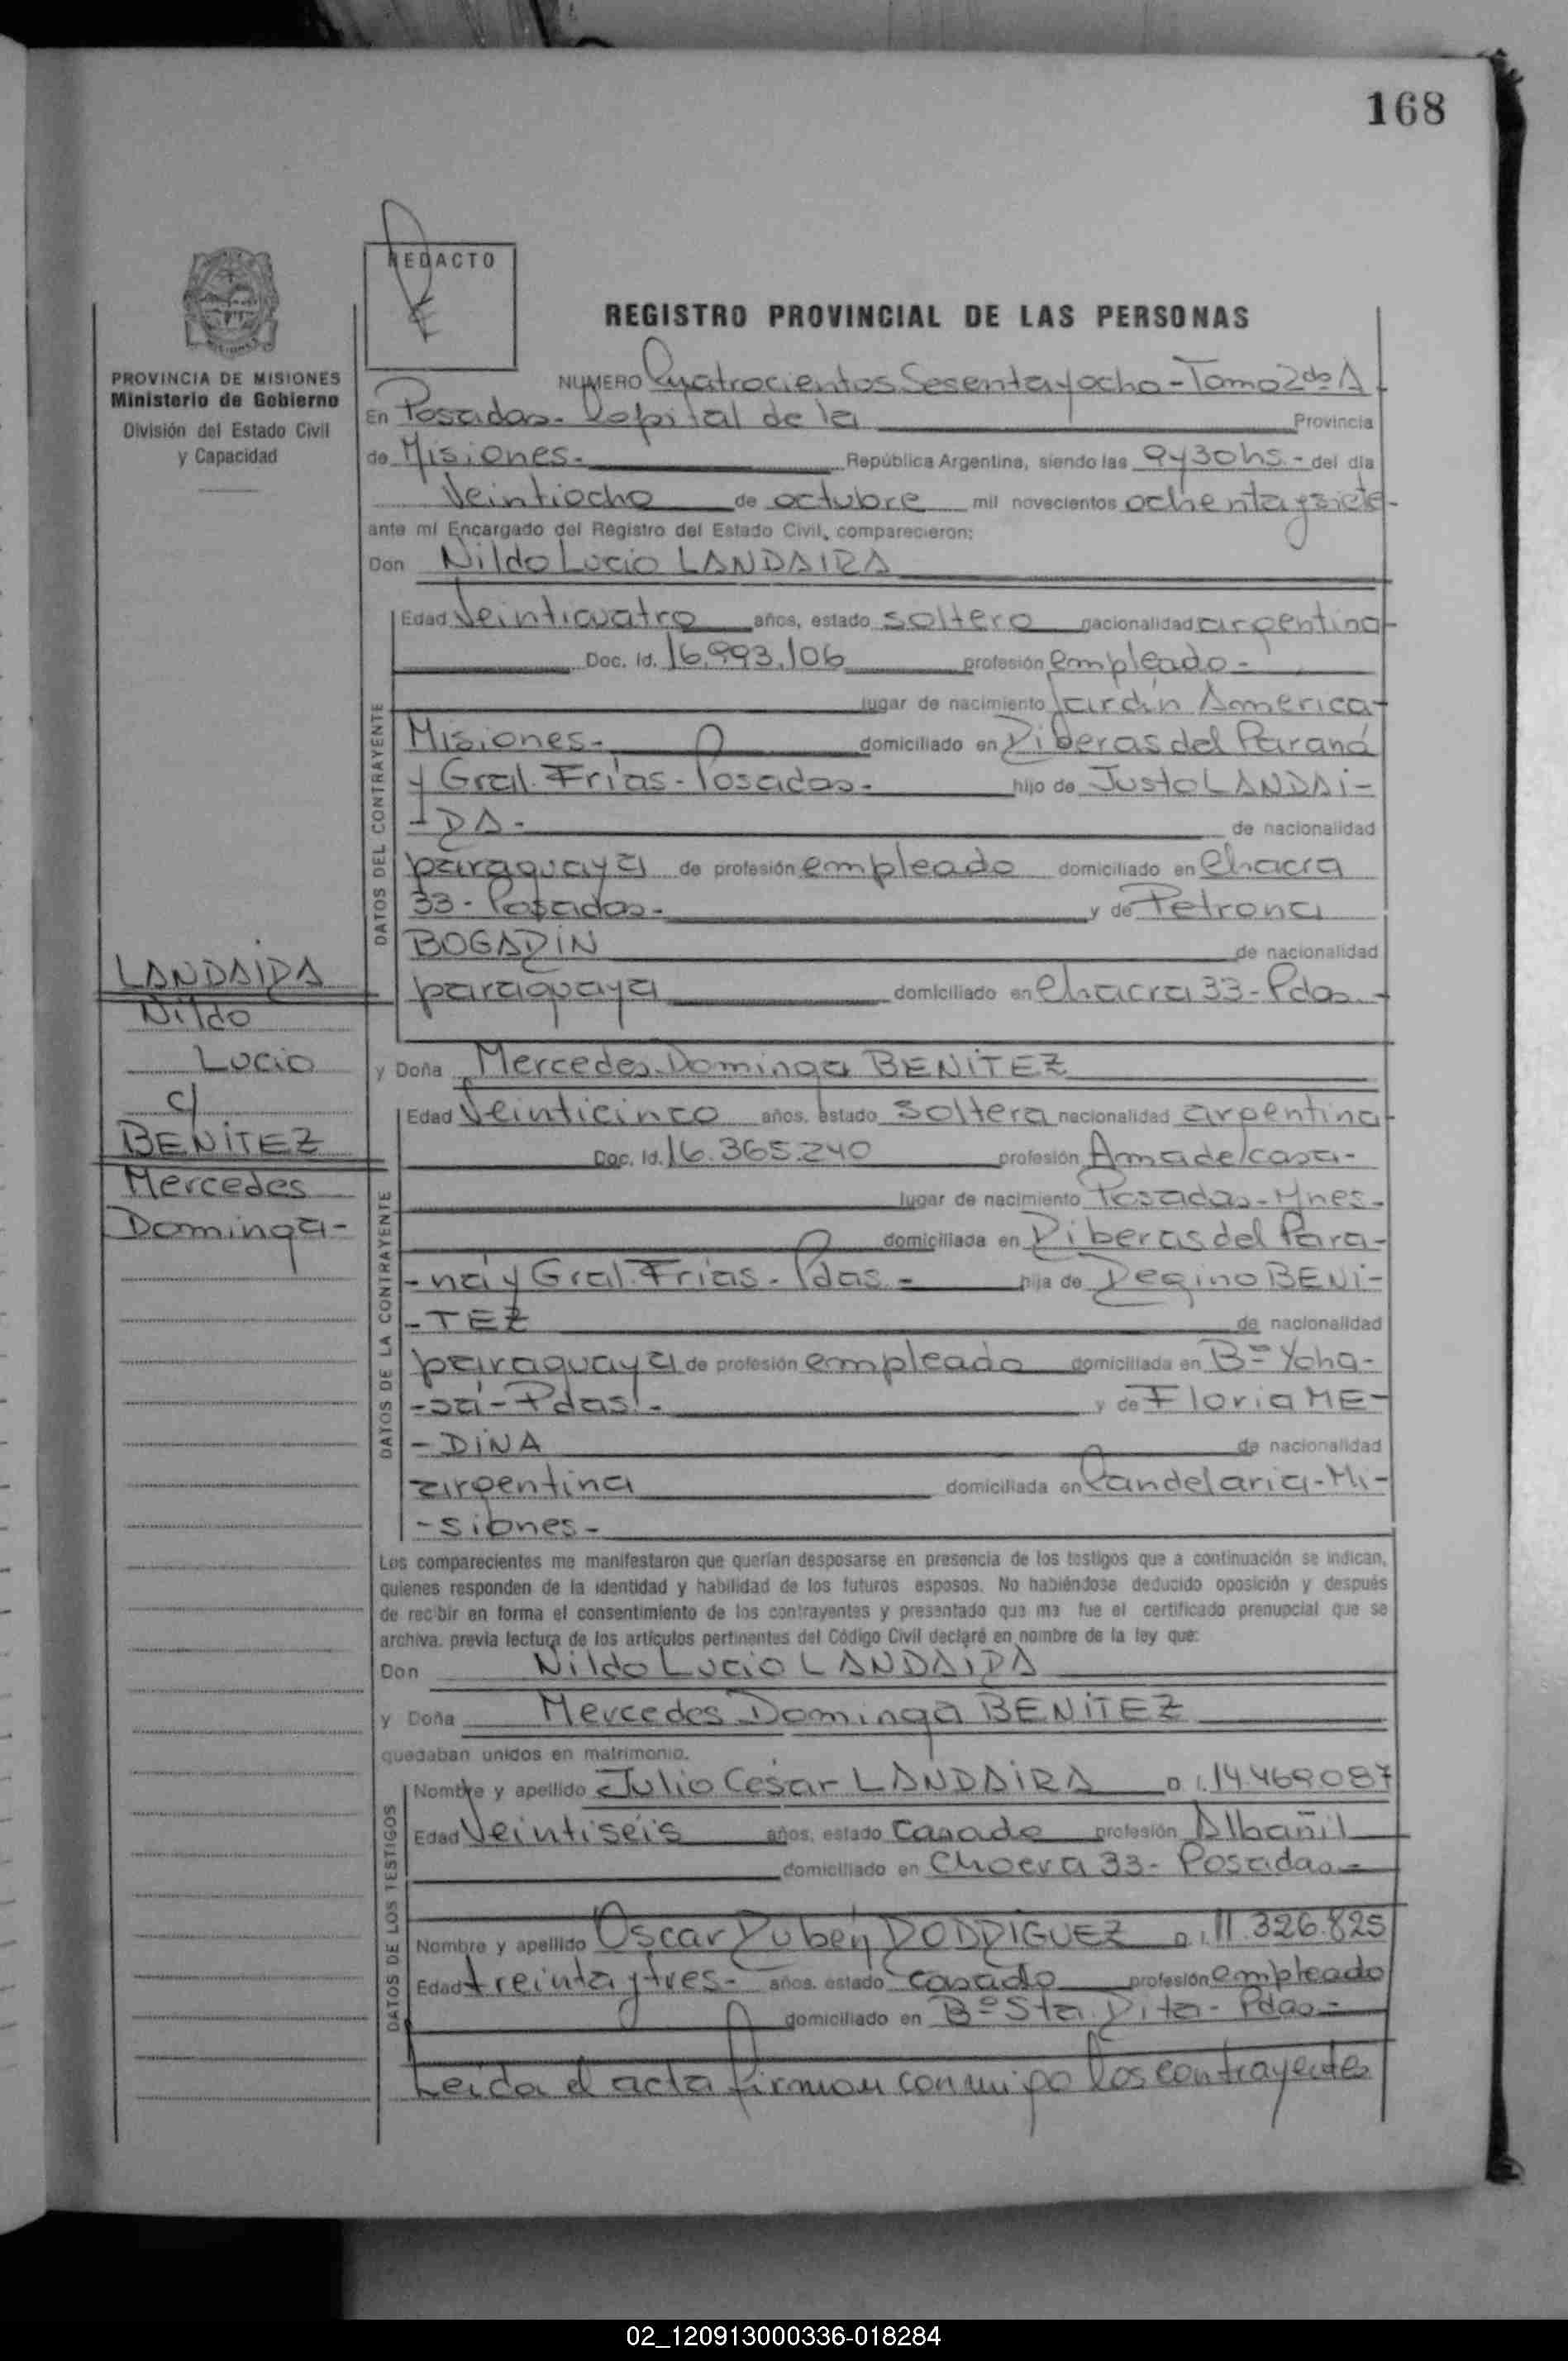 168
REDACTO
REGISTRO PROVINCIAL DE LAS PERSONAS
PROVINCIA DE MISIONES
Ministerio de Gobierno
División del Estado Civil
y Capacidad
NUMERO Cuatrocientos Sesenta y ocho - Tomo 2do A
En Posadas - Capital de la Provincia
de Misiones.- República Argentina, siendo las 9 y 30 hs. - del día
Veintiocho de octubre mil novecientos ochenta y siete-
ante mí Encargado del Registro del Estado Civil, comparecieron:
Don Nildo Lucio LANDAIRA
DATOS DEL CONTRAYENTE
Edad Veinticuatro años, estado soltero nacionalidad argentina-
Doc. Id. 16.993.106 profesión empleado -
lugar de nacimiento Jardín America-
Misiones.- domiciliado en Riberas del Paraná
y Gral. Frías - Posadas.- hijo de Justo LANDAI-
-RA- de nacionalidad
paraguaya de profesión empleado domiciliado en Chacra
33 - Posadas- y de Petrona
BOGARIN de nacionalidad
paraguaya domiciliado en Chacra 33 - Pdas.-
LANDAIRA
Nildo
Lucio
c/
BENITEZ
Mercedes
Dominga-
y Doña Mercedes Dominga BENITEZ
DATOS DE LA CONTRAYENTE
Edad Veinticinco años, estado soltera nacionalidad argentina-
Doc. Id. 16.365.240 profesión Ama de casa-
lugar de nacimiento Posadas - Mnes.-
domiciliada en Riberas del Para-
-ná y Gral. Frías - Pdas.- hija de Regino BENI-
-TEZ de nacionalidad
paraguaya de profesión empleado domiciliada en Bº Ycha-
- Pdas.- y de Floria ME-
-DINA de nacionalidad
argentina domiciliada en Candelaria - Mi-
-siones-
Los comparecientes me manifestaron que querían desposarse en presencia de los testigos que a continuación se indican,
quienes responden de la identidad y habilidad de los futuros esposos. No habiéndose deducido oposición y después
de recibir en forma el consentimiento de los contrayentes y presentado que me fue el certificado prenupcial que se
archiva, previa lectura de los artículos pertinentes del Código Civil declaré en nombre de la ley que:
Don Nildo Lucio LANDAIRA
y Doña Mercedes Dominga BENITEZ
quedaban unidos en matrimonio.
DATOS DE LOS TESTIGOS
Nombre y apellido Julio César LANDAIRA D.I. 14.469.087
Edad Veintiséis años, estado casado profesión Albañil
domiciliado en Chacra 33 - Posadas-
Nombre y apellido Oscar Rubén RODRIGUEZ D.I. 11.326.825
Edad treinta y tres- años, estado casado profesión empleado
domiciliado en Bº Sta Rita - Pdas-
Leída el acta firman conmigo los contrayentes
02_120913000336-018284